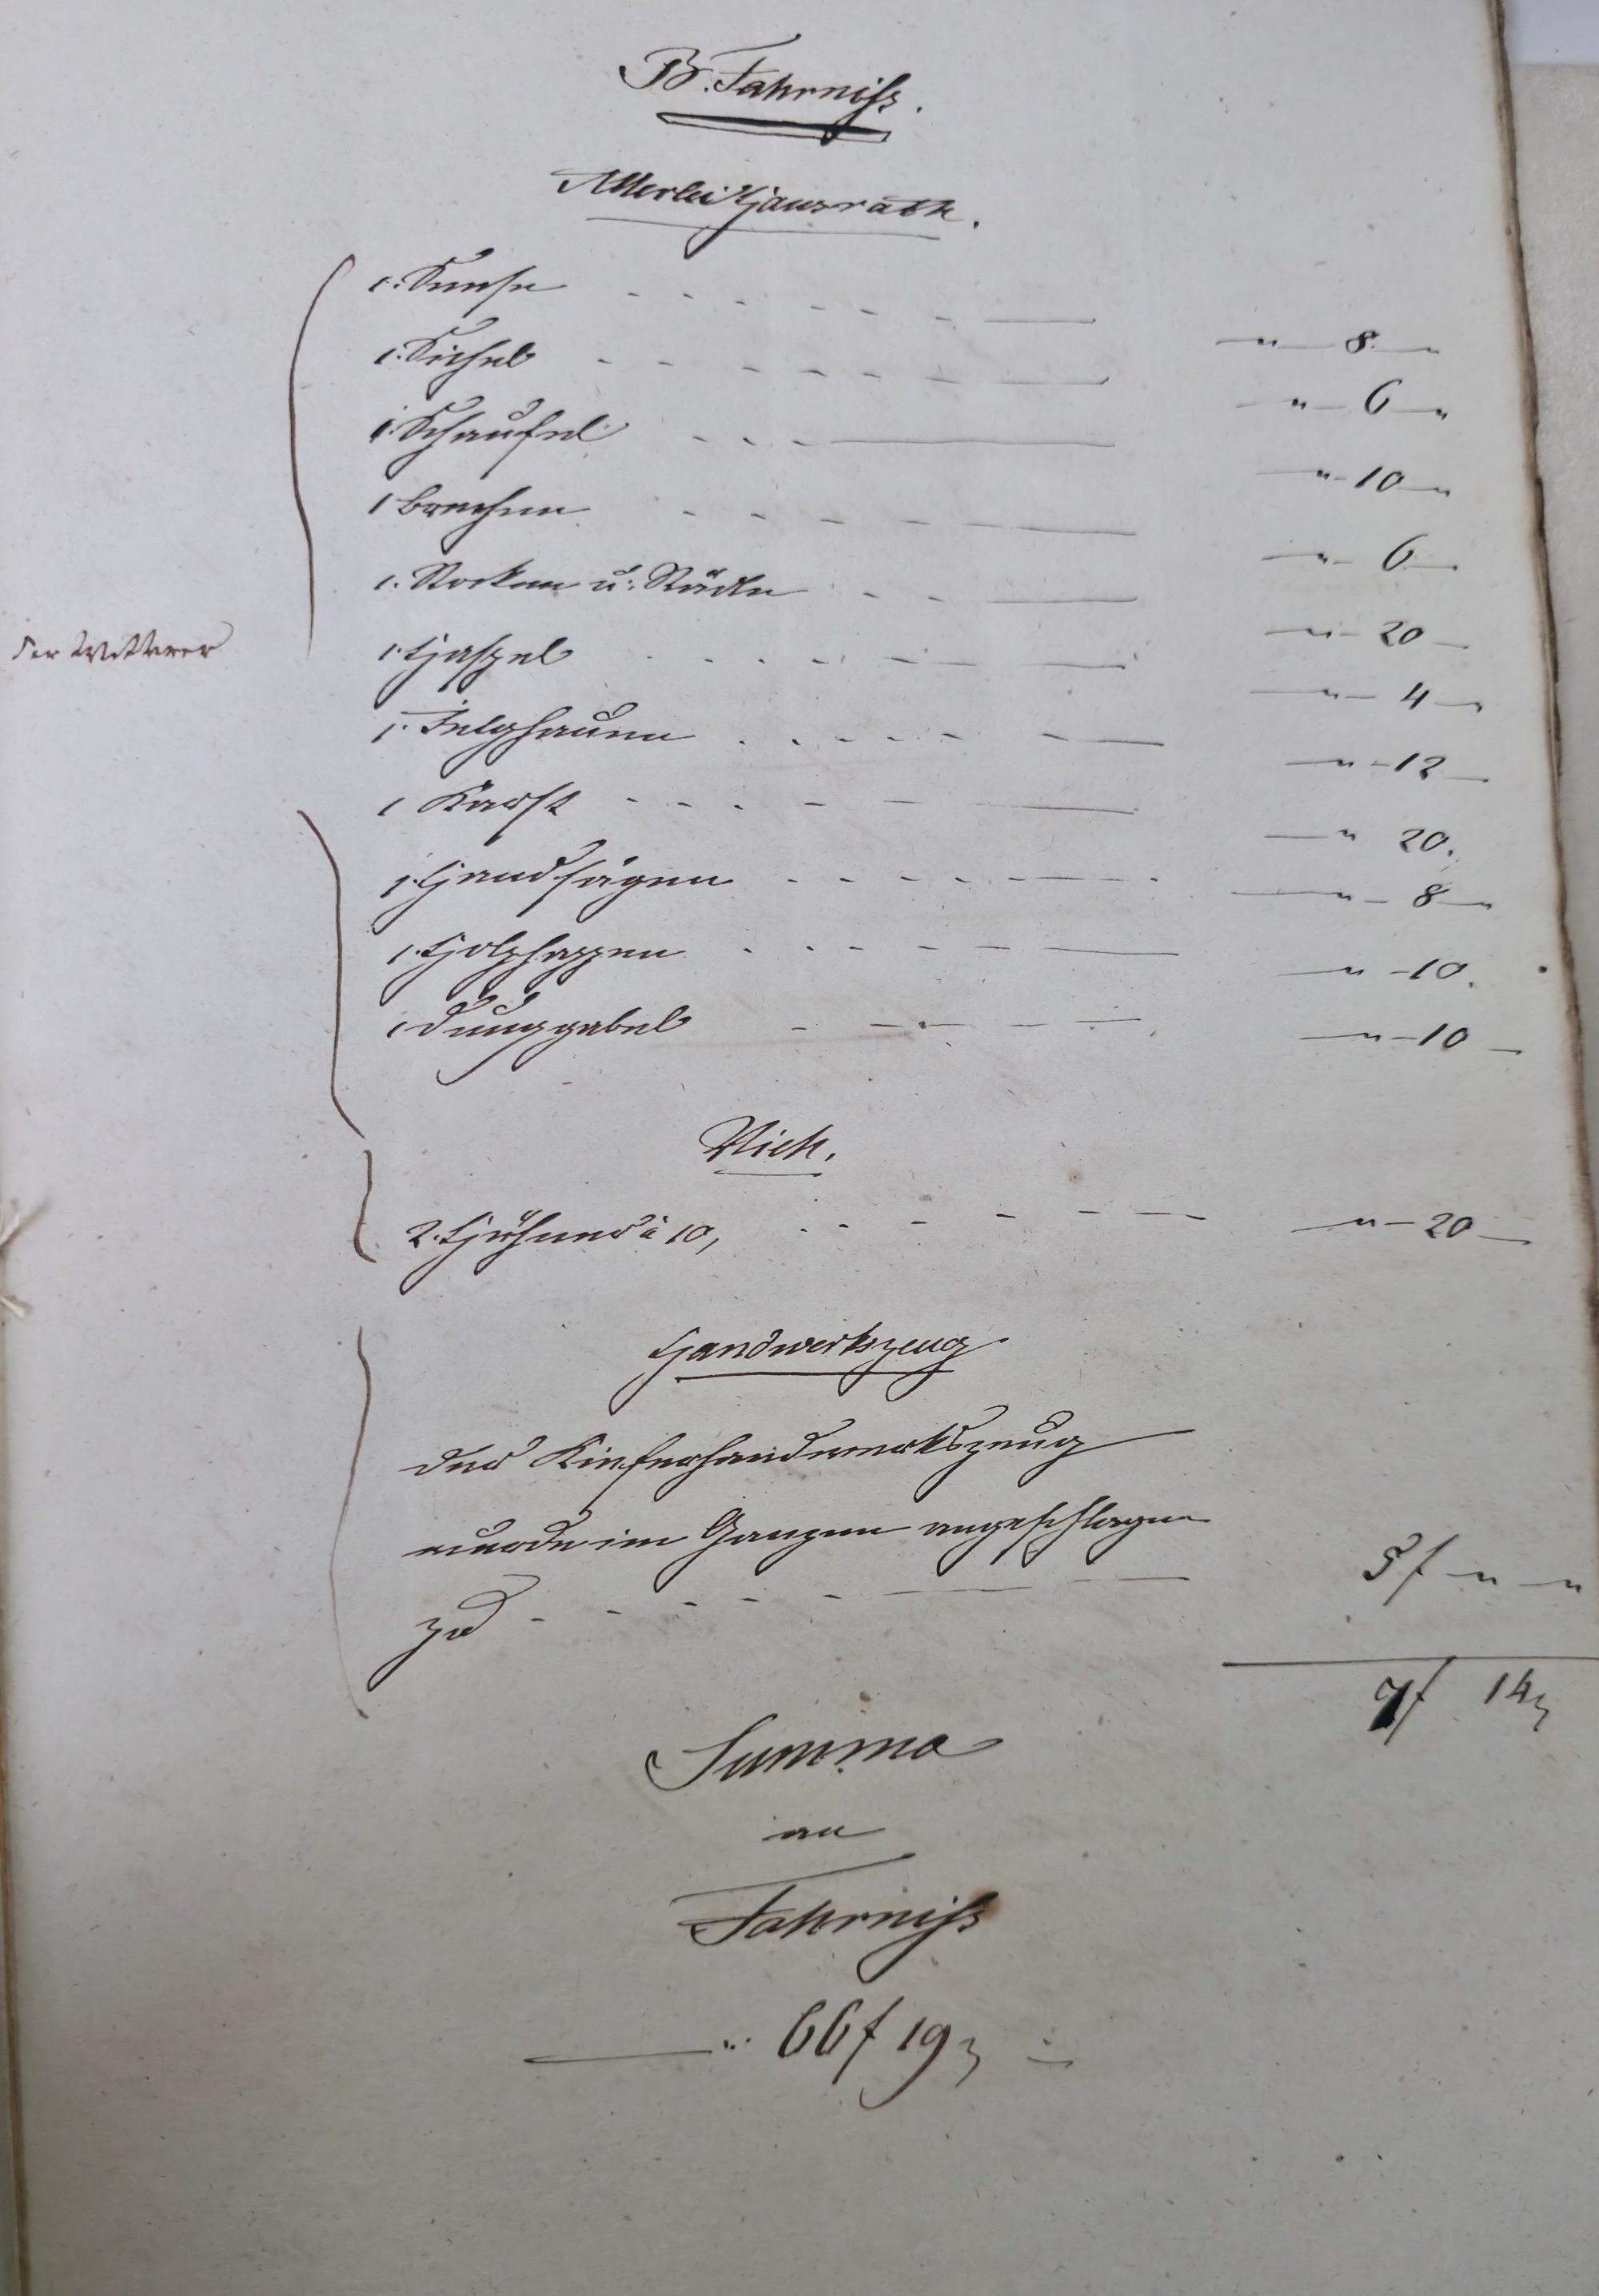 B. Fahrniß.
Allerlei Hausrath.
1. Sense - - - - - - - — " — 8. — "
1. Sichel - - - - - - - — " — 6 — "
1. Schaufel - - - — " — 10 — "
1 Brechen - - - - - — " — 6 —
1. Rocken u. Rädle - - — " — 20 —
der Wittwer
1. Haspel - - - - - - — " — 4 — "
1. Felghauen - - - - - — " — 12 —
1 Karst - - - - - — " 20.
1. Handsägen - - - - - — " — 8 — "
1. Holzhappen - - - - - — " — 10.
1 Dunggabel - - - - — " — 10 —
Vieh.
2. Hühner à 10, - - - - - — " — 20 —
Handwerkszeug
Das Kieferhandwerkszeug
wurde im Ganzen angeschlagen
zu - - - - - — 5 f — " — "
7 f 14
Summa
an
Fahrniß
— " 66 f 19